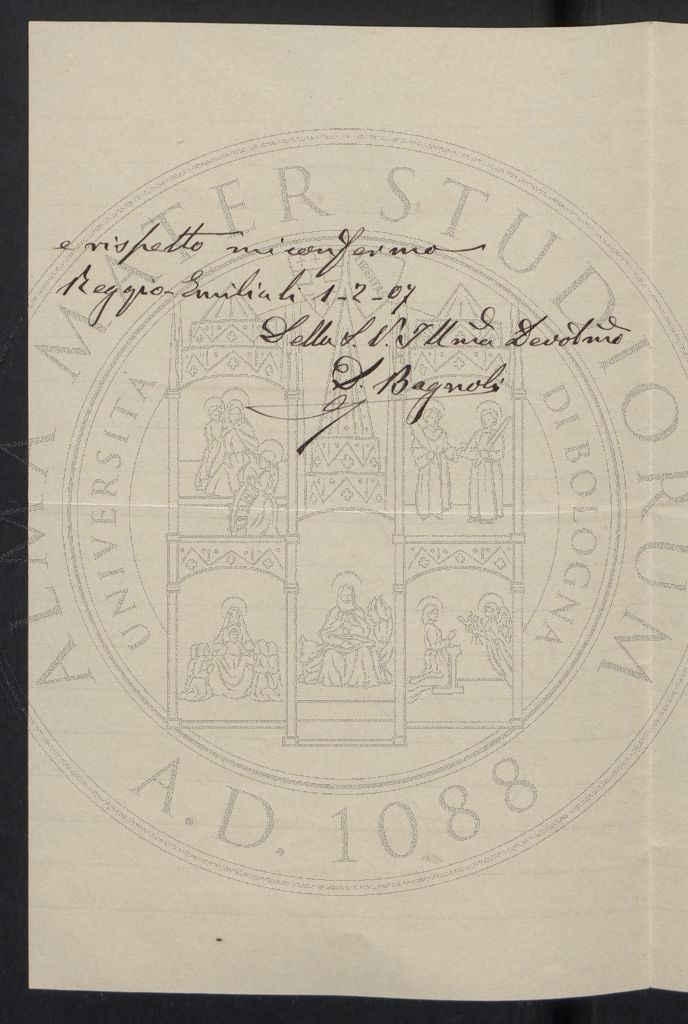 e rispetto mi confermo
Reggio-Emilia li 1-2-07
Della S. V. Illma Devotmo
S. Bagnoli
ALMA MATER STUDIORUM
UNIVERSITA DI BOLOGNA
A.D. 1088